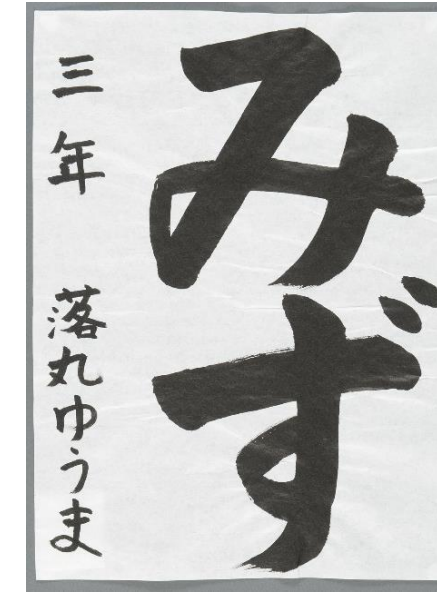 みず
三年 落丸ゆうま